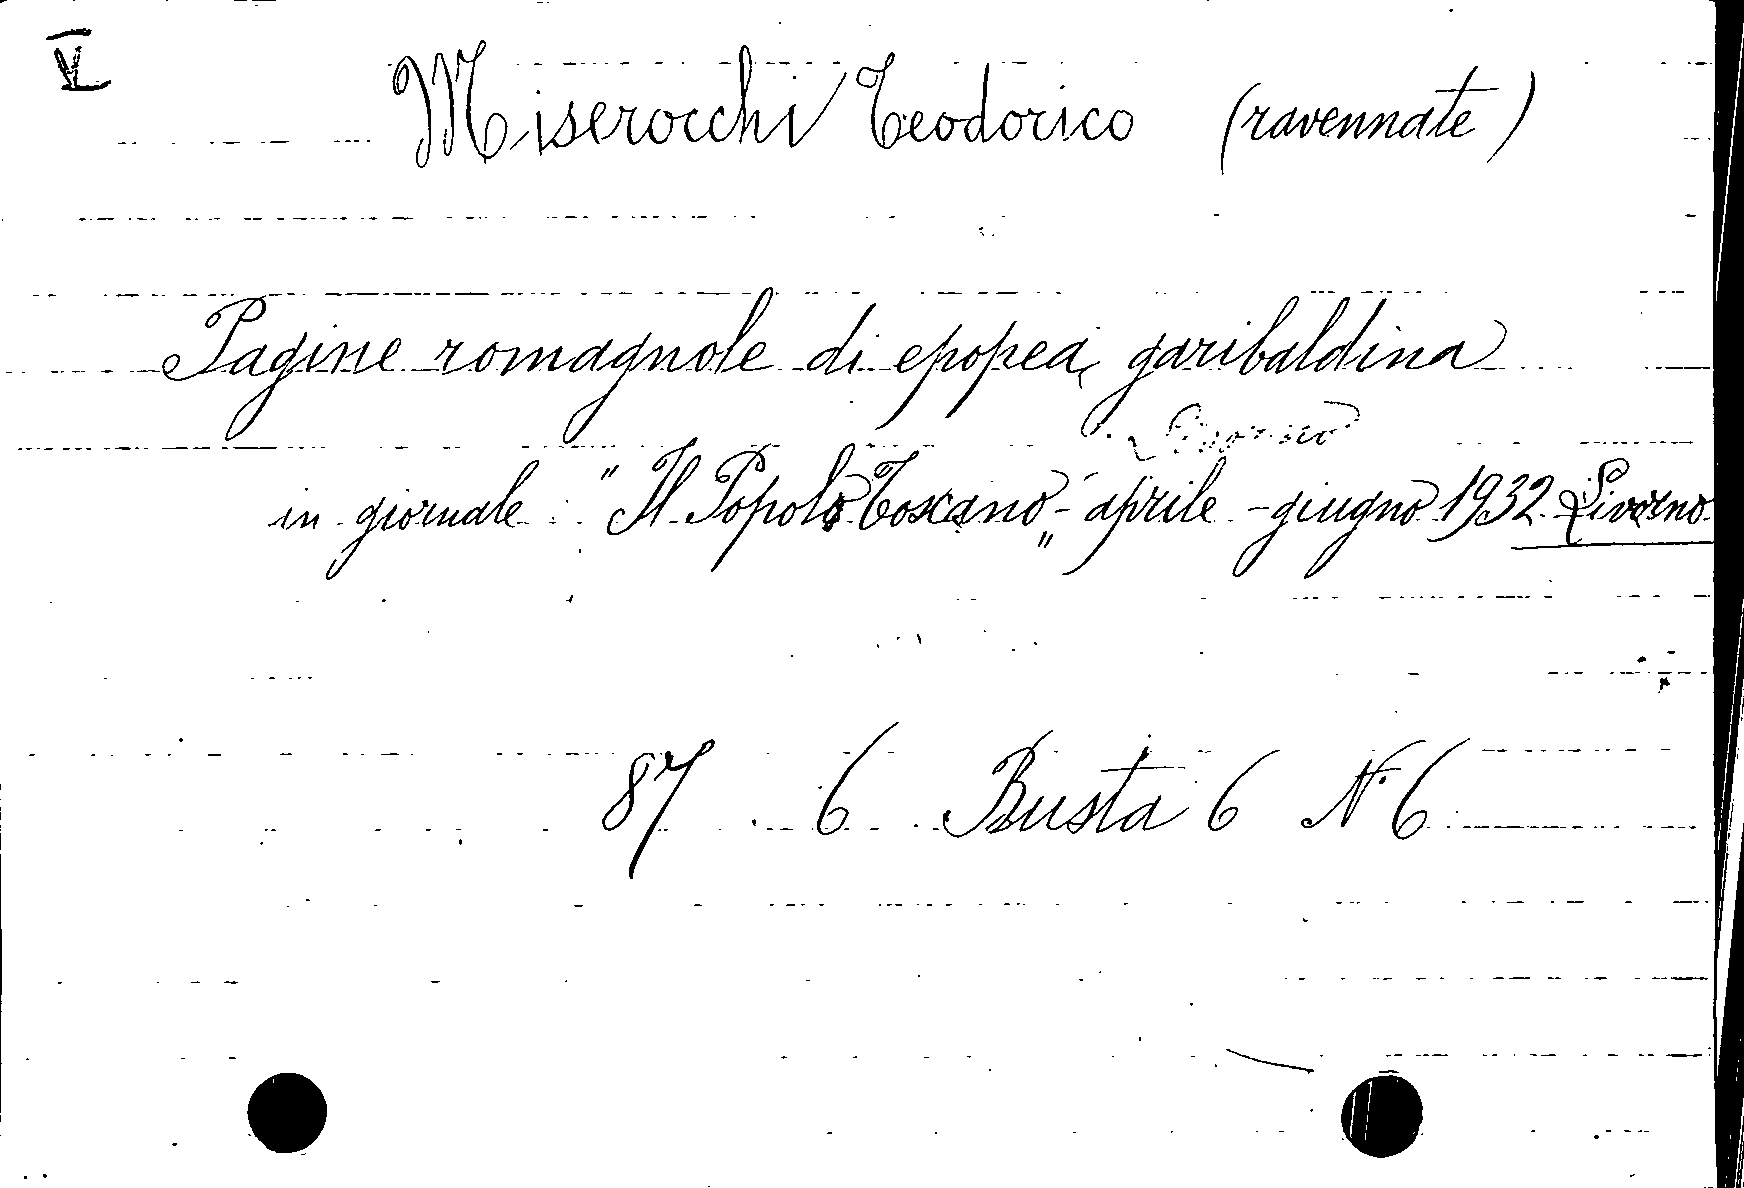 V
Miserocchi Teodorico (ravennate)
Pagine romagnole di epopea garibaldina
Livorno
in giornale: "Il Popolo Toscano„ - aprile - giugno 1932 Livorno
87 6 Busta 6 N. 6